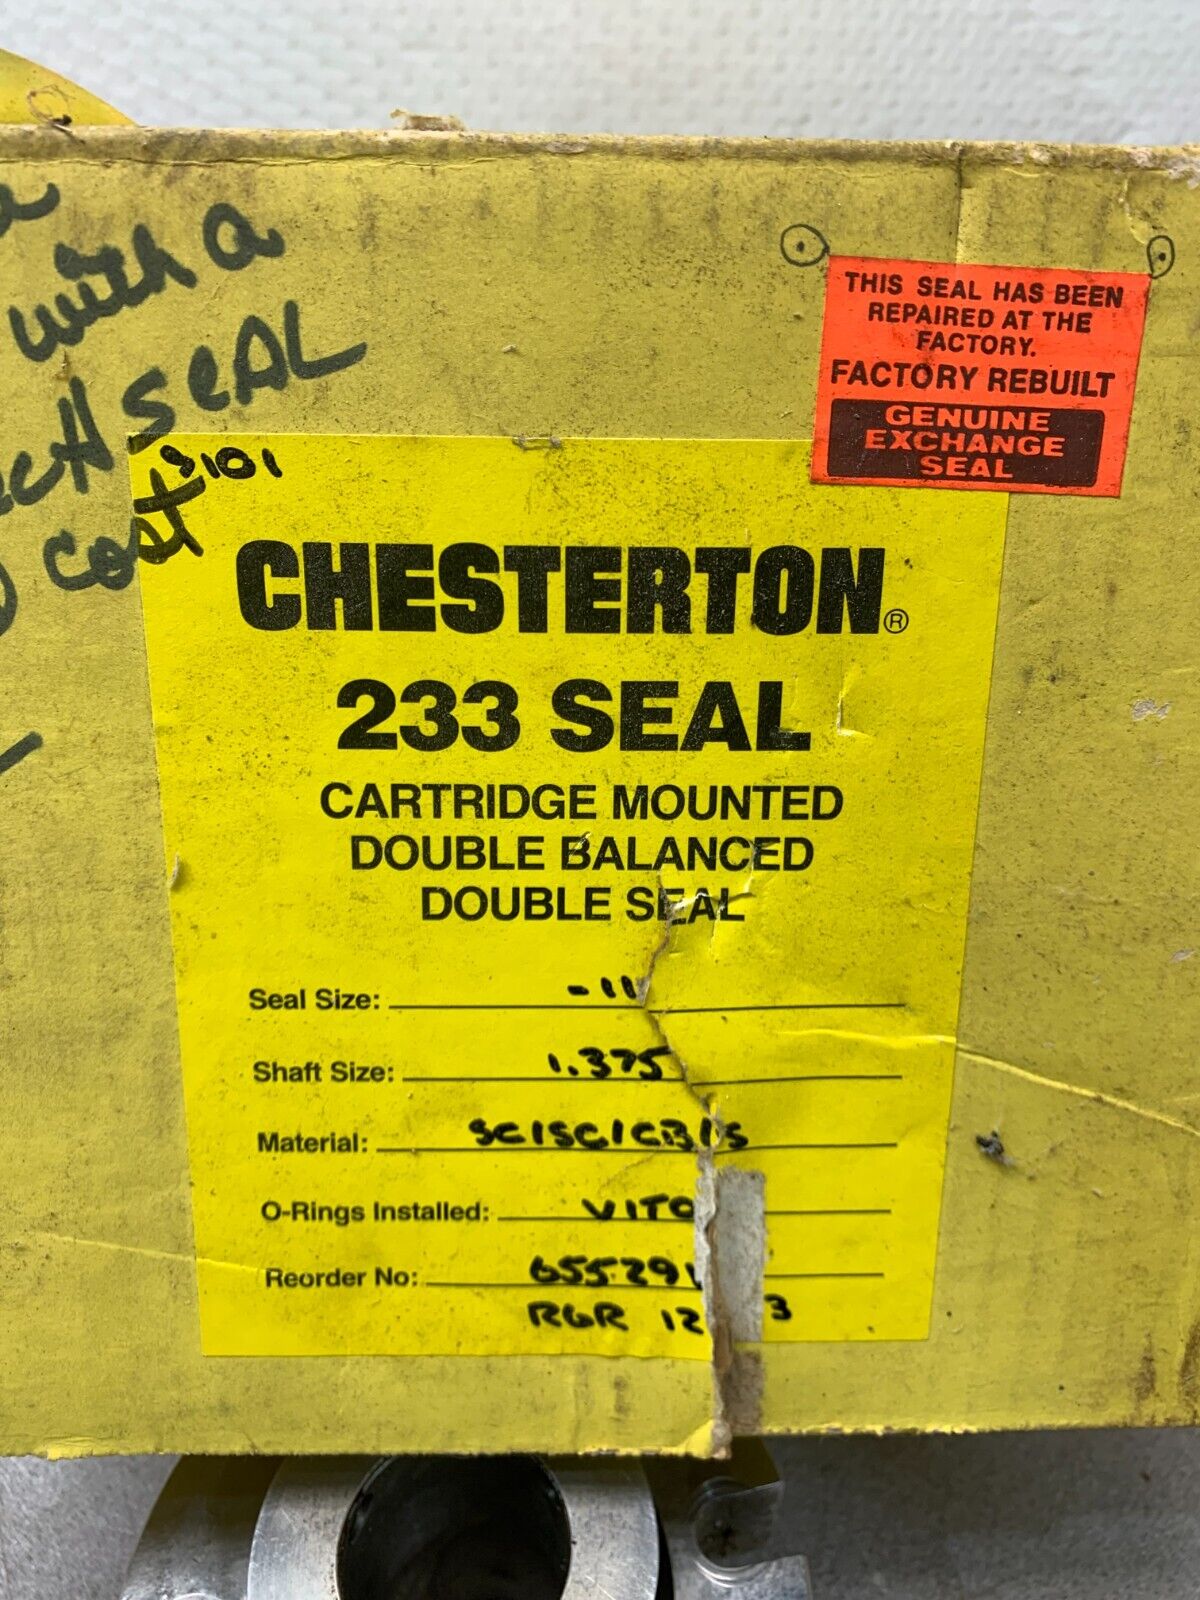 with a
SEAL
cost
THIS SEAL HAS BEEN
REPAIRED AT THE
FACTORY.
FACTORY REBUILT
GENUINE
EXCHANGE
SEAL
CHESTERTON®
233 SEAL
CARTRIDGE MOUNTED
DOUBLE BALANCED
DOUBLE SEAL
Seal Size: -11
Shaft Size: 1.375
Material: SC/SC/CB/S
O-Rings Installed: VITO
Reorder No: 655291
RGR 12 3